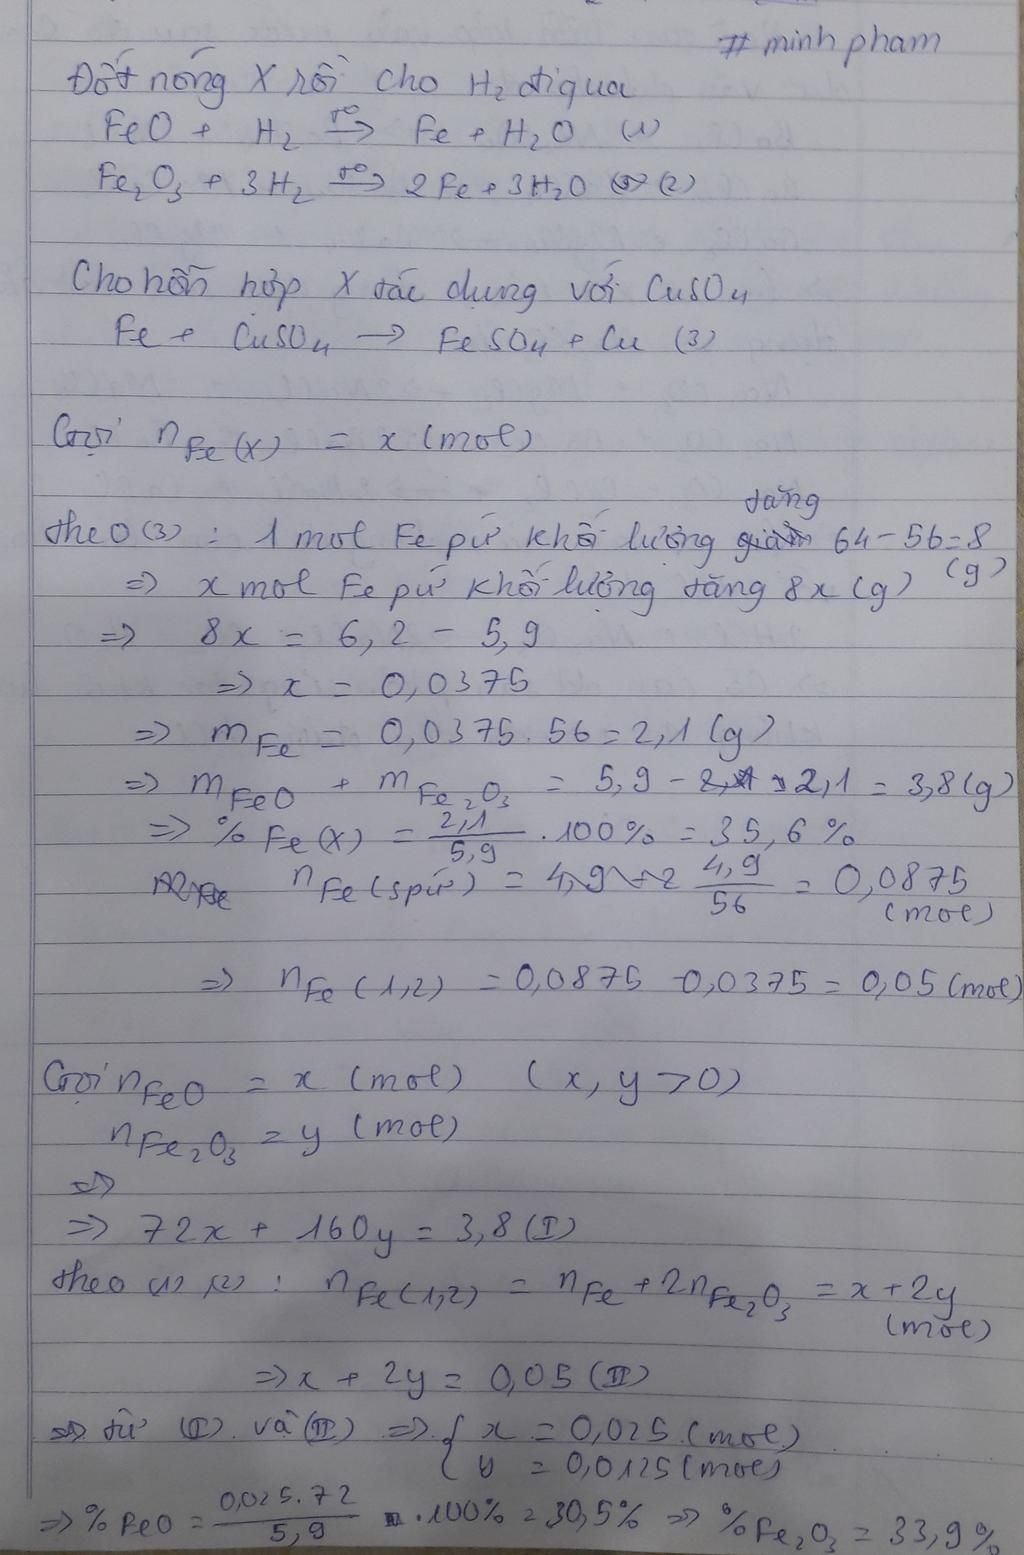 # minh pham
Đốt nóng X rồi cho H₂ đi qua
FeO + H₂ →(t°) Fe + H₂O (1)
Fe₂O₃ + 3H₂ →(t°) 2Fe + 3H₂O (2)
Cho hỗn hợp X tác dụng với CuSO₄
Fe + CuSO₄ → FeSO₄ + Cu (3)
Gọi n Fe(X) = x (mol)
theo (3) : 1 mol Fe pứ khối lượng tăng 64 - 56 = 8 (g)
=> x mol Fe pứ khối lượng tăng 8x (g)
=> 8x = 6,2 - 5,9
=> x = 0,0375
=> m Fe = 0,0375 . 56 = 2,1 (g)
=> m FeO + m Fe₂O₃ = 5,9 - 2,1 = 3,8 (g)
=> % Fe(X) = 2,1/5,9 . 100% = 35,6 %
n Fe (spứ) = 4,9/56 = 0,0875 (mol)
=> n Fe (1,2) = 0,0875 - 0,0375 = 0,05 (mol)
Gọi n FeO = x (mol) (x, y > 0)
n Fe₂O₃ = y (mol)
=>
=> 72x + 160y = 3,8 (I)
theo (1) (2) : n Fe(1,2) = n Fe + 2n Fe₂O₃ = x + 2y (mol)
=> x + 2y = 0,05 (II)
=> từ (I) và (II) => { x = 0,025 (mol)
y = 0,0125 (mol)
=> % FeO = 0,025.72/5,9 . 100% = 30,5% => % Fe₂O₃ = 33,9%